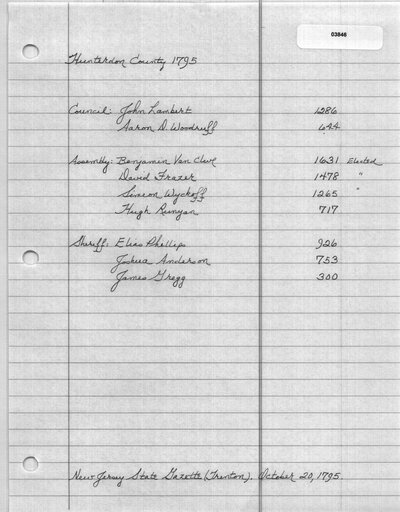 03846
Hunterdon County 1795
Council: John Lambert 1286
Aaron D. Woodruff 644
Assembly: Benjamin Van Cleve 1631 Elected
David Frazer 1478 "
Simeon Wyckoff 1265 "
Hugh Runyan 717
Sheriff: Elias Phillips 926
Joshua Anderson 753
James Gregg 300
New Jersey State Gazette (Trenton). October 20, 1795.